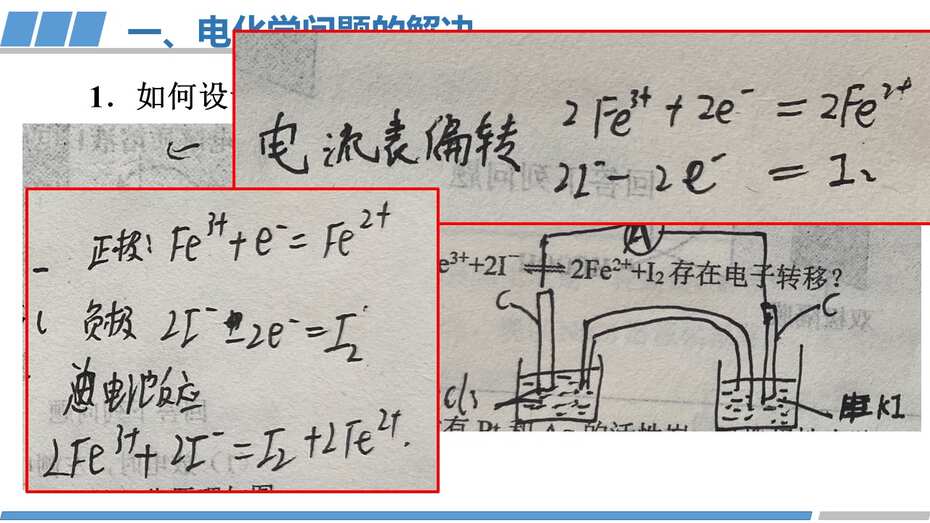 一、电化学问题的解决
1. 如何设
电流表偏转 2Fe³⁺+2e⁻=2Fe²⁺
2I⁻-2e⁻=I₂
正极: Fe³⁺+e⁻=Fe²⁺
负极 2I⁻-2e⁻=I₂
总电池反应
2Fe³⁺+2I⁻=I₂+2Fe²⁺.
A
e³⁺+2I⁻⇌2Fe²⁺+I₂存在电子转移？
C C
Cl₃
KI